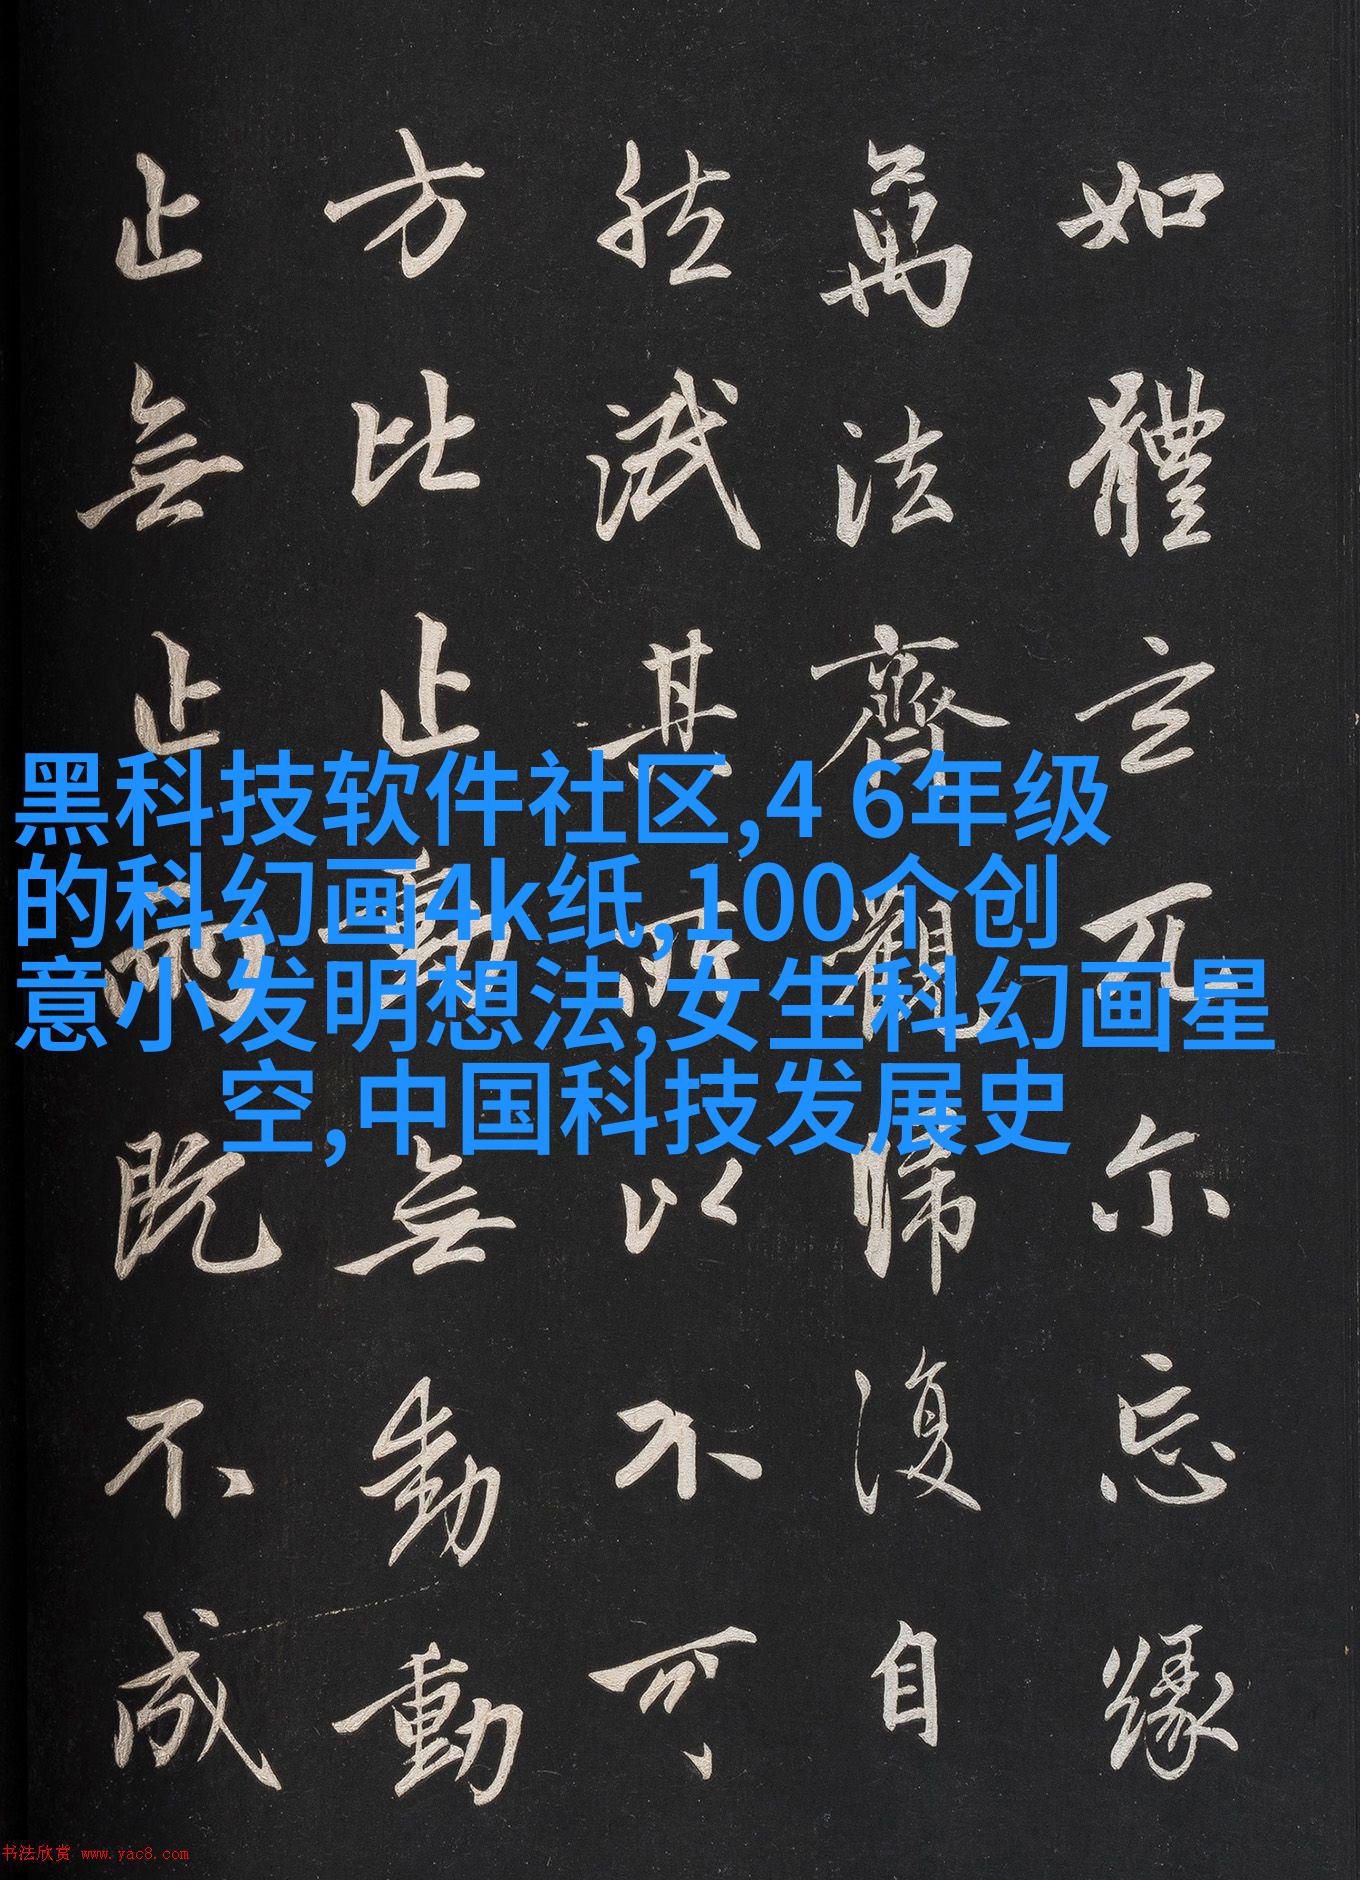 如體玄兀尔忘緣
萬法齊觀歸復自
然泯其所以不可
方比止動無動動
止無止兩既不成
黑科技软件社区,4 6年级
的科幻画4k纸,100个创
意小发明想法,女生科幻画星
空,中国科技发展史
书法欣赏 www.yac8.com